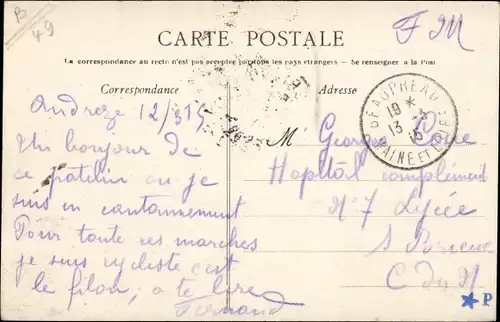 B
49
F M
CARTE POSTALE
La correspondance au recto n'est pas acceptée par tous les pays étrangers — Se renseigner à la Post
Correspondance
Adresse
Andreze 12/3 15
Un bonjour de
ce patelin ou je
suis en cantonnement
Pour toute ces marches
je suis cycliste c'est
le filon, a te lire
Fernand
M Georges
Hopital complément
N° 7 Lycée
S Brieuc
C du N
BEAUPREAU
19 *
13 3
15
MAINE ET LOIRE
P